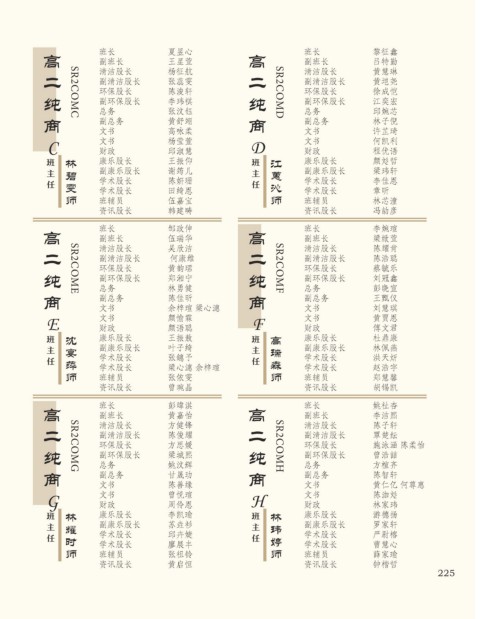 高二纯商 C
SR2COMC
班主任 林碧雯师
班长 夏呈心
副班长 王孟萱
清洁股长 杨征航
副清洁股长 张蕊雯
环保股长 陈凌轩
副环保股长 李玮祺
总务 张汶钰
副总务 黄舒翊
文书 高咏柔
文书 杨莹萱
财政 邱淑慧
康乐股长 王振仰
副康乐股长 谢蒨儿
学术股长 陈妍璇
学术股长 田绮恩
班辅员 伍嘉宝
资讯股长 韩建畴
高二纯商 D
SR2COMD
班主任 江蕙沁师
班长 黎征鑫
副班长 吕特勤
清洁股长 黄慧琳
副清洁股长 黄道尧
环保股长 徐成恺
副环保股长 江奕宏
总务 邱婉芯
副总务 林子倪
文书 许芷琦
文书 何凯利
财政 程优语
康乐股长 颜灼哲
副康乐股长 梁玮轩
学术股长 李仕恩
学术股长 章昕
班辅员 林芯潼
资讯股长 冯皓彦
高二纯商 E
SR2COME
班主任 沈宴萍师
班长 邹政伸
副班长 伍瑞华
清洁股长 吴欣洁
副清洁股长 何康维
环保股长 黄韵珺
副环保股长 郑湘宁
总务 林勇健
副总务 陈佳昕
文书 余梓瑄 梁心濍
文书 颜愉霖
财政 颜诗聪
康乐股长 王振敖
副康乐股长 叶子绮
学术股长 张穗予
学术股长 梁心濍 余梓瑄
班辅员 张依雯
资讯股长 曾琬晶
高二纯商 F
SR2COMF
班主任 高珊霖师
班长 李婉瑄
副班长 梁维萱
清洁股长 陈耀肯
副清洁股长 陈浩聪
环保股长 蔡毓乐
副环保股长 刘冠鑫
总务 彭晓宣
副总务 王甄仪
文书 刘慧琪
文书 黄贾恩
财政 傅文君
康乐股长 杜鼎康
副康乐股长 林佩燕
学术股长 洪天妤
学术股长 赵浩宇
班辅员 郑慧馨
资讯股长 胡锡凯
高二纯商 G
SR2COMG
班主任 林耀时师
班长 彭暐淇
副班长 黄嘉怡
清洁股长 方健锋
副清洁股长 陈俊耀
环保股长 方思媛
副环保股长 梁城熙
总务 姚汶辉
副总务 甘晟功
文书 陈善缘
文书 曾悦瑄
财政 周伶恩
康乐股长 李凯琦
副康乐股长 苏垚杉
学术股长 邱卉婕
学术股长 廖晨丰
班辅员 张祖铃
资讯股长 黄启恒
高二纯商 H
SR2COMH
班主任 林玮婷师
班长 姚杜春
副班长 李洁熙
清洁股长 陈子轩
副清洁股长 覃楚妘
环保股长 施泳涵 陈柔怡
副环保股长 曾浩韶
总务 方楦齐
副总务 陈智轩
文书 黄仁亿 何尊惠
文书 陈渤灼
财政 林家玮
康乐股长 游德扬
副康乐股长 罗家轩
学术股长 严尉榕
学术股长 曹慧心
班辅员 薛家瑜
资讯股长 钟楷哲
225